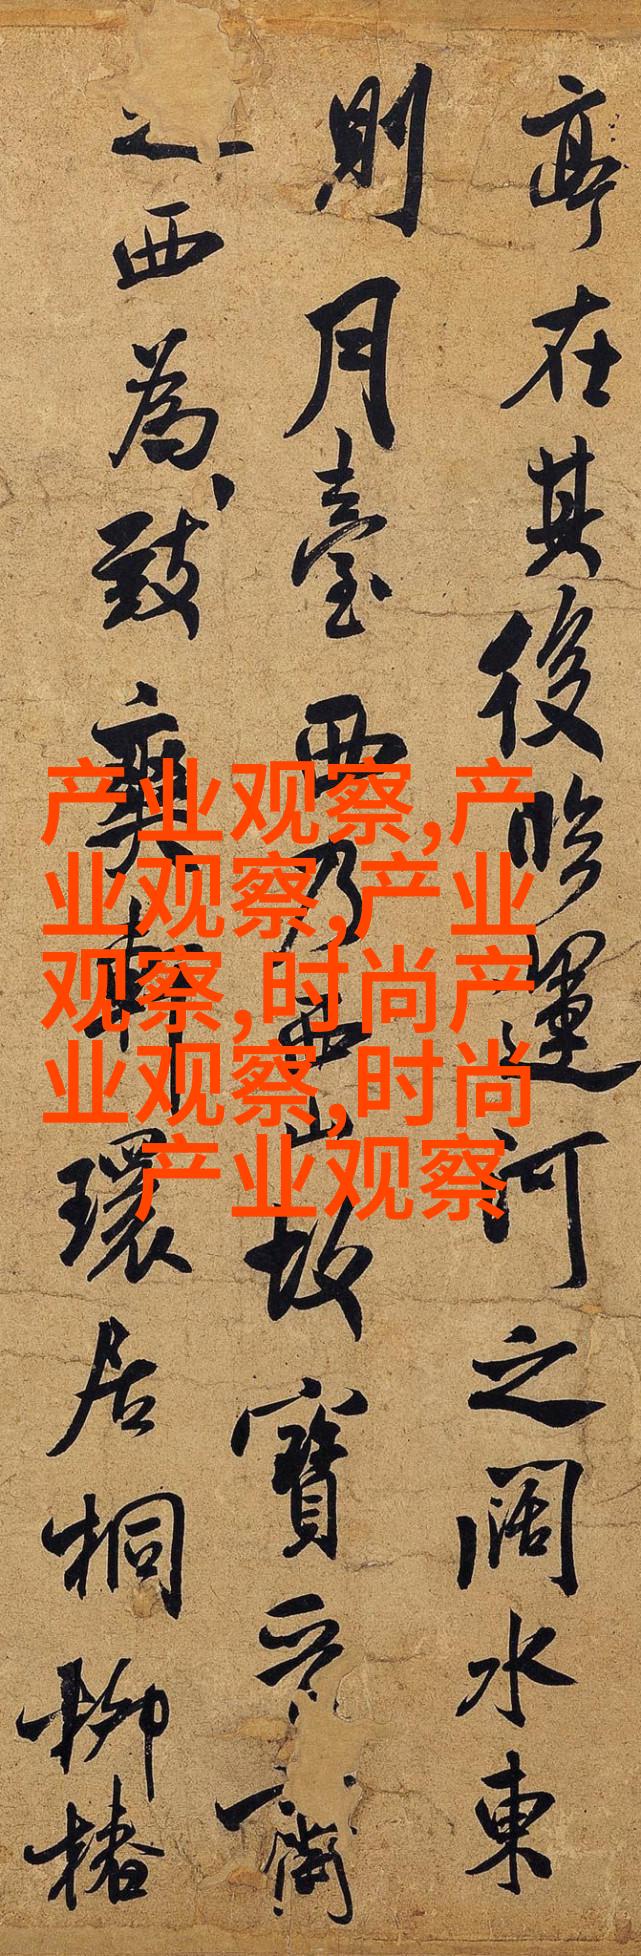 亭在其後眇運河之闊水東
則月臺西乃西山故寶晉齋
之西為致爽軒環居桐柳椿
产业观察,产
业观察,产业
观察,时尚产
业观察,时尚
产业观察